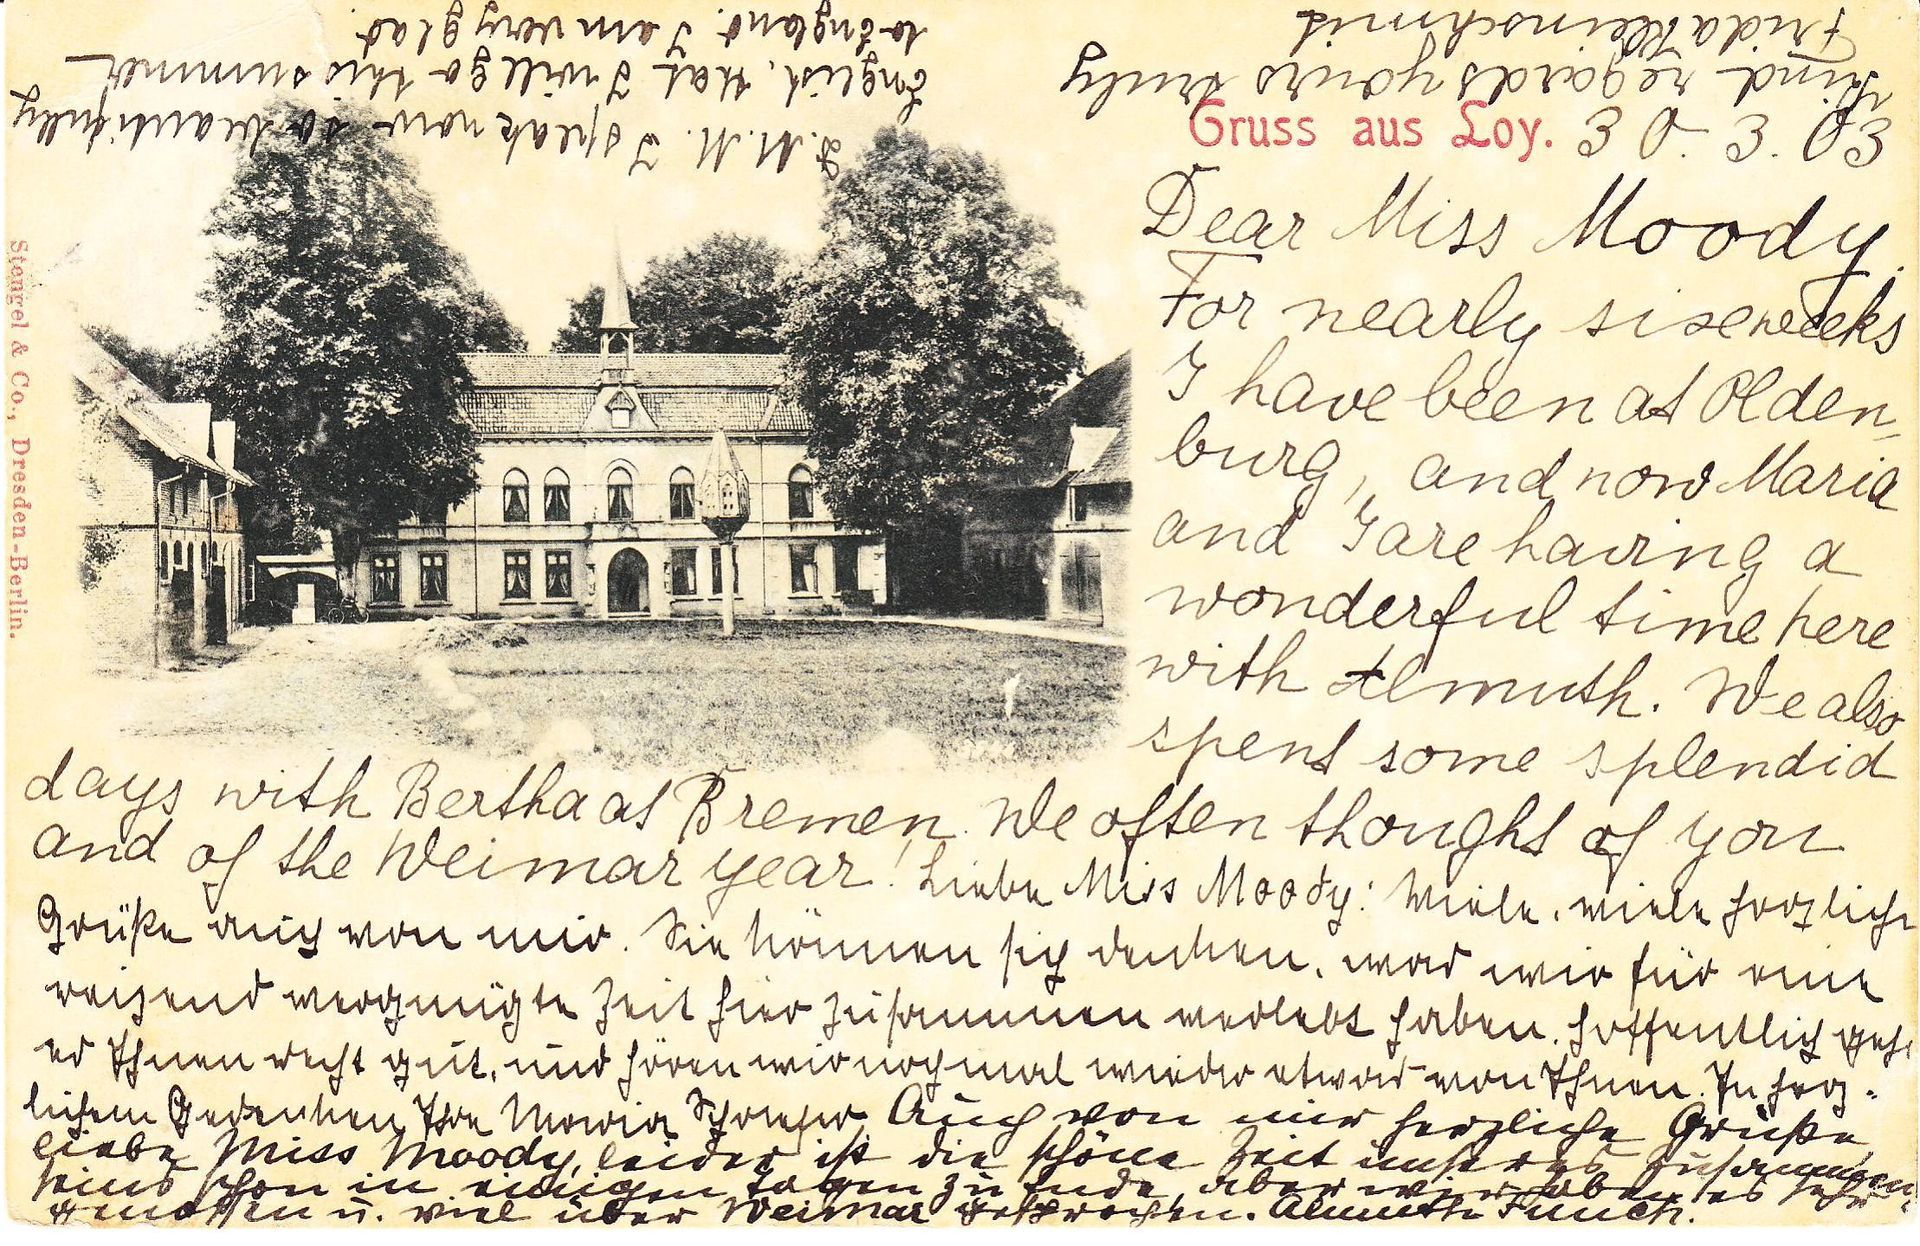 Gruss aus Loy. 30. 3. 03
Dear Miss Moody.
For nearly sixe weeks
I have been at Olden-
burg, and now Maria
and I are having a
wonderful time here
with Almuth. We also
spent some splendid
days with Bertha at Bremen. We often thought of you
and of the Weimar year! Liebe Miss Moody! Viele, viele herzliche
Grüße auch von mir. Sie können sich denken, was wir für eine
reizend vergnügte Zeit hier zusammen verlebt haben. Hoffentlich geht
es Ihnen recht gut, und hören wir noch mal wieder etwas von Ihnen. In herz-
lichem Gedenken Ihre Maria Auch von mir herzliche Grüße
liebe Miss Moody, leider ist die schöne Zeit unseres Zusammen
seins schon in einigen Tagen zu Ende, aber wir haben es sehr
genossen u. viel über Weimar gesprochen. Almuth Funch.
kind regards yours truly
Frida Kleinschmid
D. M. M. I speak now so beautifully
English, that I will go this summer
to England. I am very glad.
Stengel & Co., Dresden-Berlin.